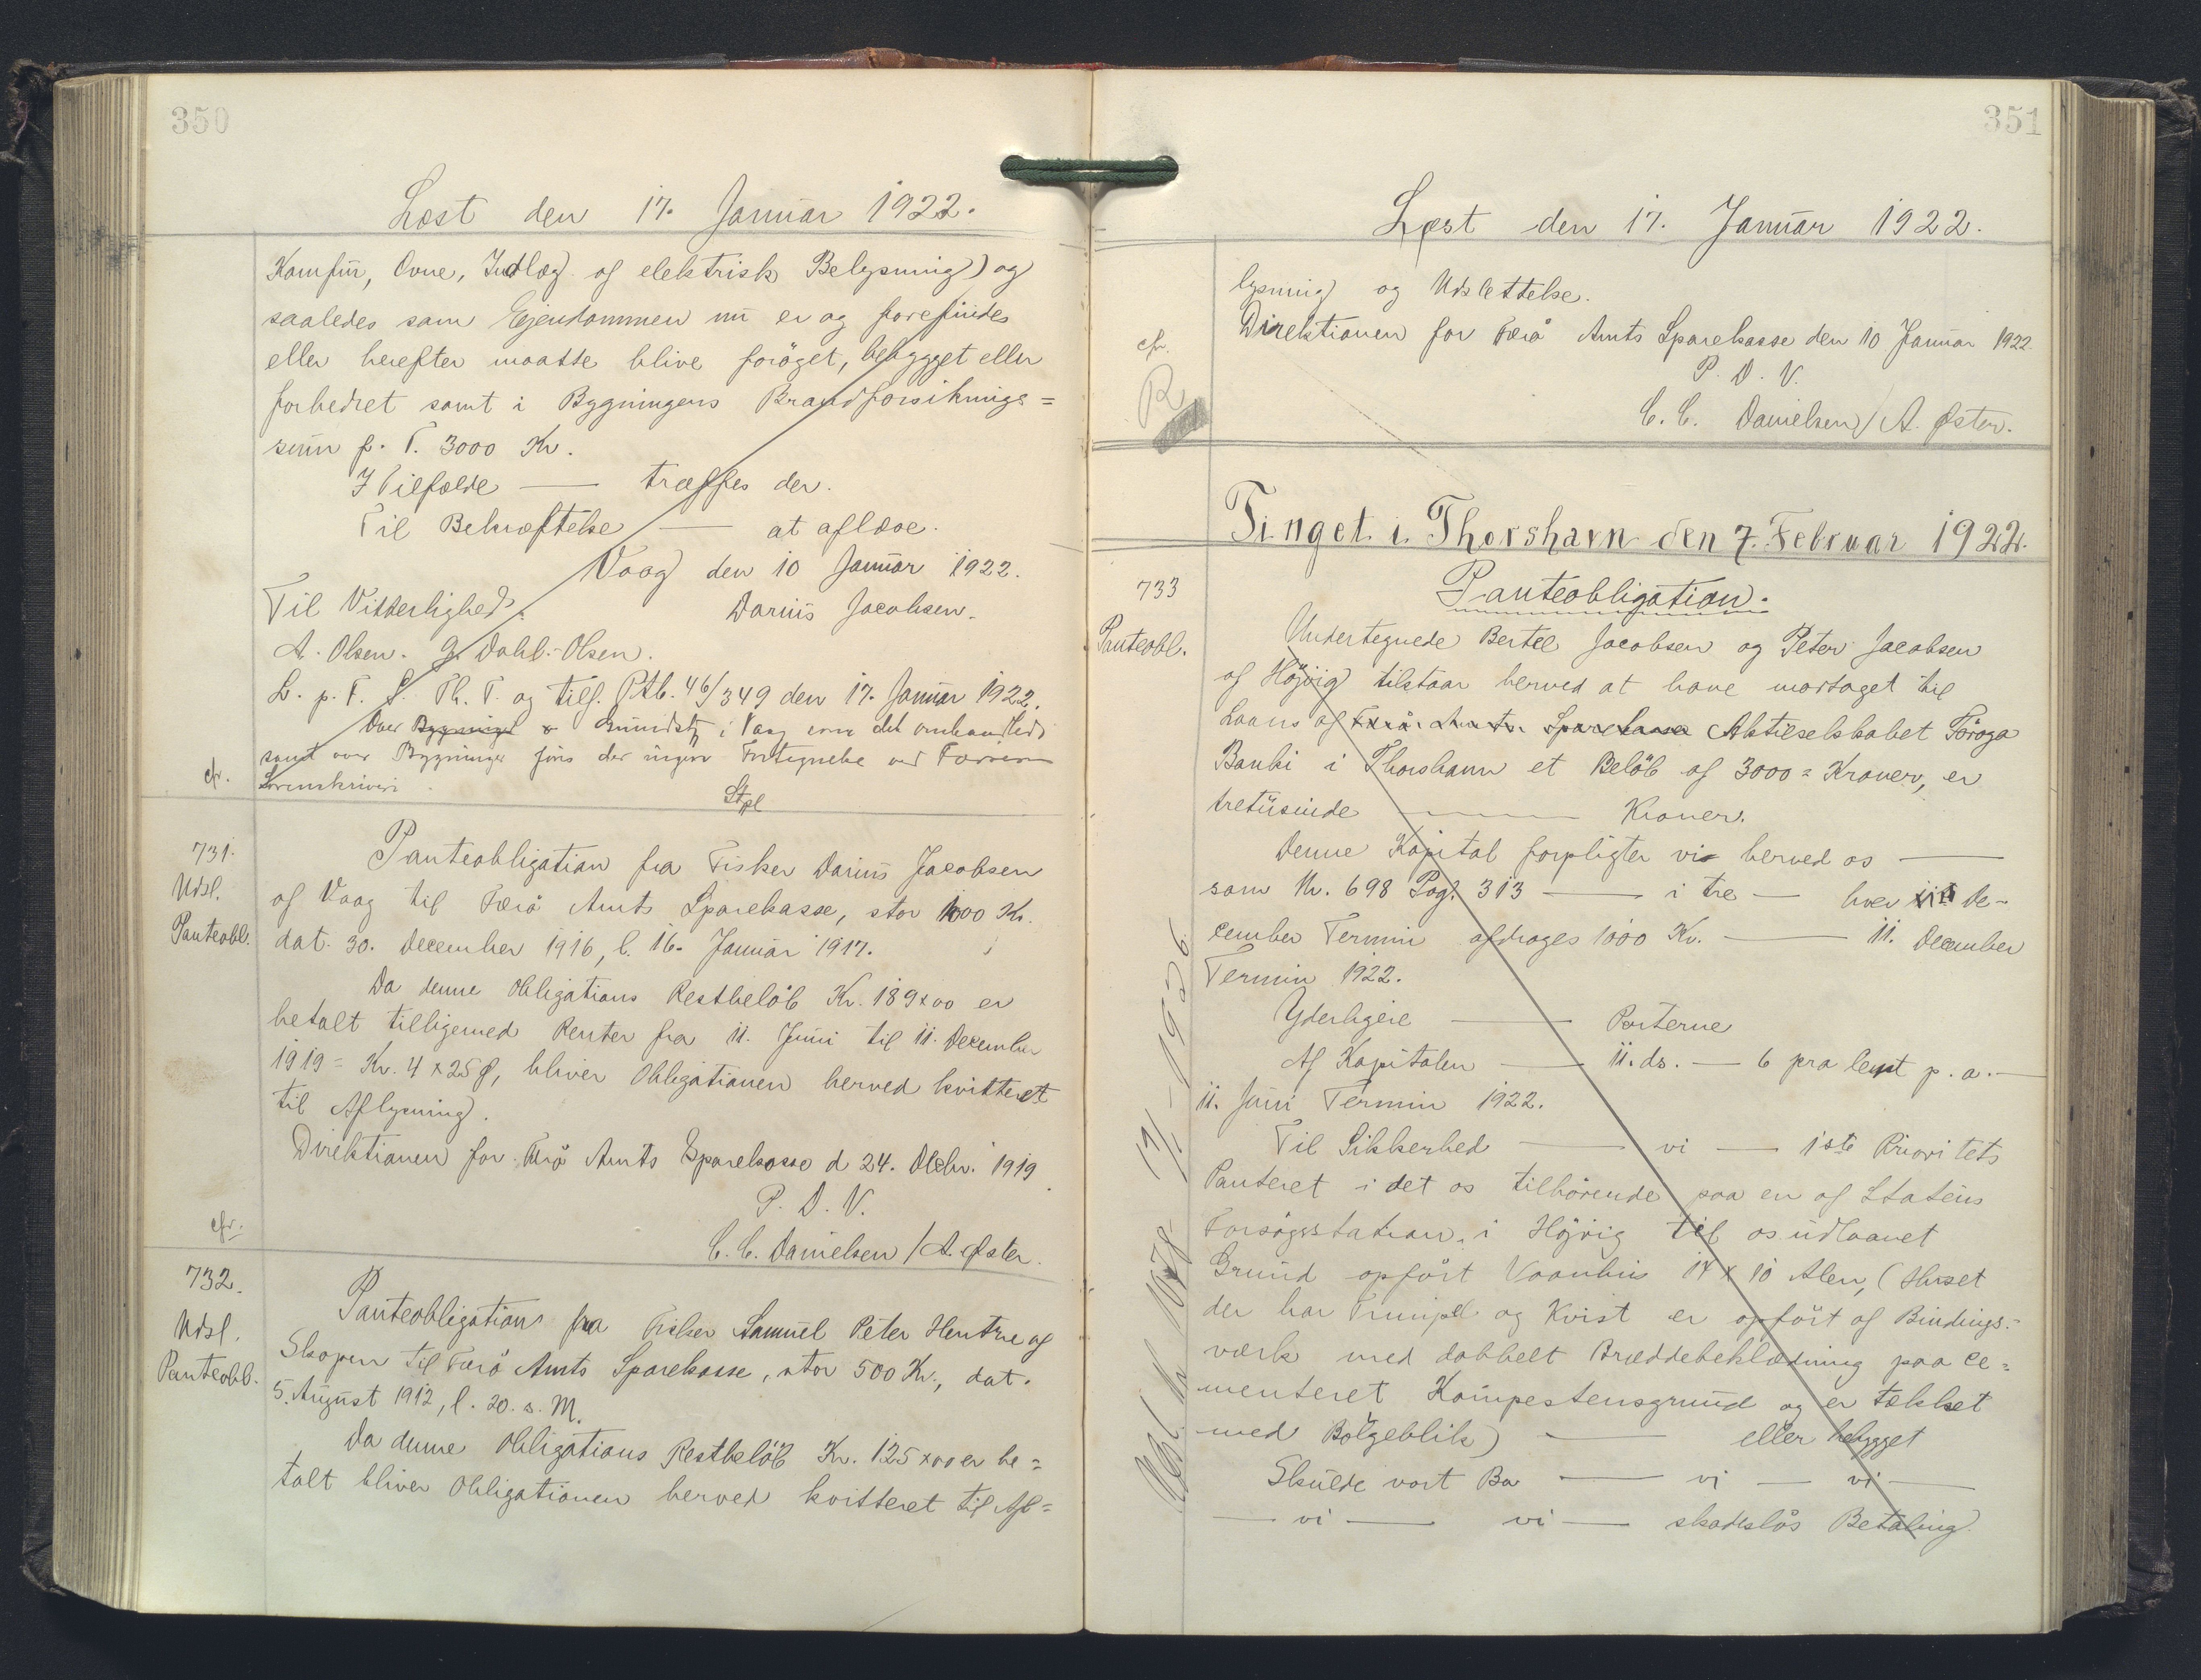 350
Læst den 17. Januar 1922.
Komfur, Ovne, Indlæg af elektrisk Belysning) og
saaledes som Ejendommen nu er og forefindes
eller herefter maatte blive forøget, bebygget eller
forbedret samt i Bygningens Brandforsikrings=
sum p. T. 3000 Kr.
I Tilfælde — træffes der.
Til Bekræftelse — at aflæse.
Vaag den 10 Januar 1922.
Til Vitterlighed: Darius Jacobsen.
A. Olsen. G. Dahl-Olsen.
L. p. F. S. Th. T. og tilf. Ptb. 46/349 den 17. Januar 1922.
Over Bygninger & Grundst i Vaag som det omhandlede
samt over Bygninger fins der ingen
cfr. Sorenskriveri
Stpl
731.
Udsl.
Panteobl.
Panteobligation fra Fisker Darius Jacobsen
af Vaag til Færö Amts Sparekasse, stor 1000 Kr.
dat. 30. December 1916, l. 16. Januar 1917.
Da denne Obligations Restbelöb Kr. 189x00 er
betalt tilligemed Renter fra 11. Juni til 11. December
1919 = Kr. 4x25 ø, bliver Obligationen herved kvitteret
til Aflysning.
Direktionen for Færö Amts Sparekasse d 24. Decbr. 1919.
P. D. V.
cfr.
C. C. Danielsen / A. Øster.
732.
Udsl.
Panteobl.
Panteobligation fra Fisker Samuel Peter Hentze af
Skopen til Færö Amts Sparekasse, stor 500 Kr., dat.
5. August 1912, l. 20. s. M.
Da denne Obligations Restbelöb Kr. 125x00 er be=
talt bliver Obligationen herved kvitteret til Af=
351
Læst den 17. Januar 1922.
lysning og Udslettelse.
Direktionen for Færö Amts Sparekasse den 10 Januar 1922.
cfr.
P. D. V.
R
C. C. Danielsen / A. Øster.
Tinget i Thorshavn den 7. Februar 1922.
733
Panteobl.
Panteobligation.
Undertegnede Bertel Jacobsen og Peter Jacobsen
af Höjvig tilstaar herved at have modtaget til
Laans af Færö Amts Sparekasse Aktieselskabet Föroya
Banki i Thorshavn et Belöb af 3000 = Kroner, er
tretusinde — Kroner.
Denne Kapital forpligter vi herved os —
som Nr. 698 Pag. 313 — i tre — hver 11 De-
cember Termin afdrages 1000 Kr. — 11. December
Termin 1922.
Yderligere — Parterne
Af Kapitalen — 11. ds. — 6 pro Cent p. a. —
11. Juni Termin 1922.
Til Sikkerhed — vi — 1ste Prioritets
Panteret i det os tilhörende paa en af Statens
Forsögsstation i Höjvig til os udlaanet
Grund opført Vaanhus 14 x 10 Alen, (Huset
der har Trempel og Kvist er opfört af Bindings-
værk med dobbelt Bræddebeklædning paa ce=
menteret Kampestensgrund og er tækket
med Bölgeblik) — eller bebygget
Skulde vort Bo — vi — vi —
— vi — vi — skadeslös Betaling.